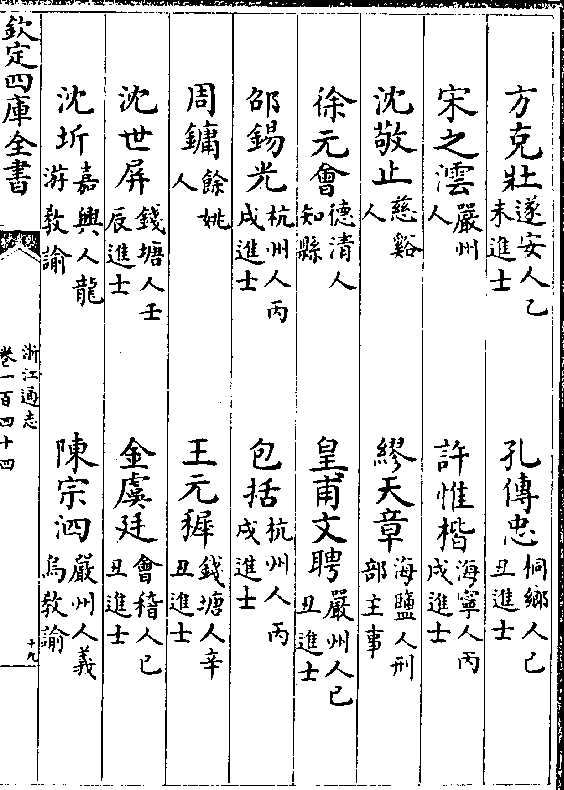 方克壯遂安人乙未進士
孔傳忠桐鄉人己丑進士
宋之澐嚴州人
許惟楷海寧人丙戌進士
沈敬止慈谿人
繆天章海鹽人刑部主事
徐元會德清人知縣
皇甫文聘嚴州人己丑進士
邵錫光杭州人丙戌進士
包括杭州人丙戌進士
周鏞餘姚人
王元穉錢塘人辛丑進士
沈世屏錢塘人壬辰進士
金虞廷會稽人己丑進士
沈圻嘉興人龍游教諭
陳宗泗嚴州人義烏教諭
欽定四庫全書
浙江通志
卷一百四十四
十九